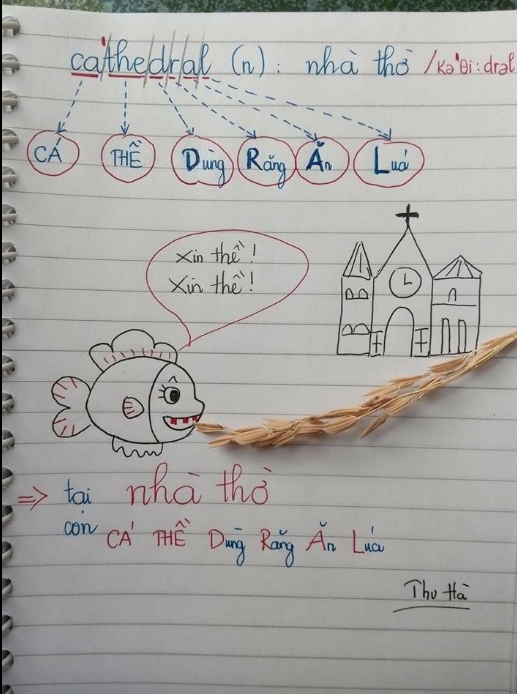 cathedral (n): nhà thờ /kə'θi:drəl
CÁ THỀ Dùng Răng Ăn Luá
Xin thề!
Xin thề!
=> tại nhà thờ
con CÁ THỀ Dùng Răng Ăn Lúa
Thu Hà